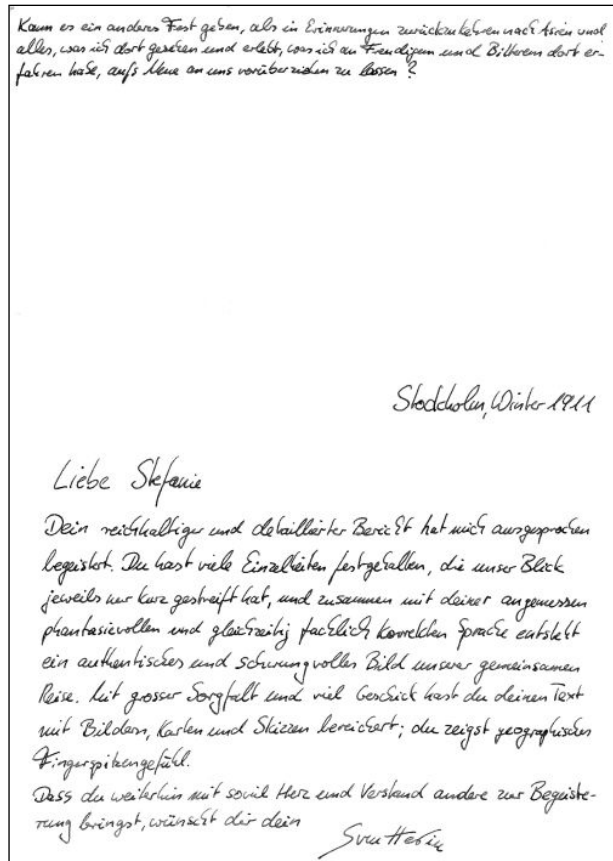 Kann es ein anderes Fest geben, als in Erinnerungen zurückzukehren nach Asien und
alles, was ich dort gesehen und erlebt, was ich an Freudigem und Bitterem dort er-
fahren habe, aufs Neue an uns vorüberziehen zu lassen?
Stockholm, Winter 1911
Liebe Stefanie
Dein reichhaltiger und detaillierter Bericht hat mich ausgesprochen
begeistert. Du hast viele Einzelheiten festgehalten, die unser Blick
jeweils nur kurz gestreift hat, und zusammen mit deiner angemessen
phantasievollen und gleichzeitig fachlich korrekten Sprache entsteht
ein authentisches und schwungvolles Bild unserer gemeinsamen
Reise. Mit grosser Sorgfalt und viel Geschick hast du deinen Text
mit Bildern, Karten und Skizzen bereichert; du zeigst geographisches
Fingerspitzengefühl.
Dass du weiterhin mit soviel Herz und Verstand andere zur Begeiste-
rung bringst, wünscht dir dein
Sven Hedin